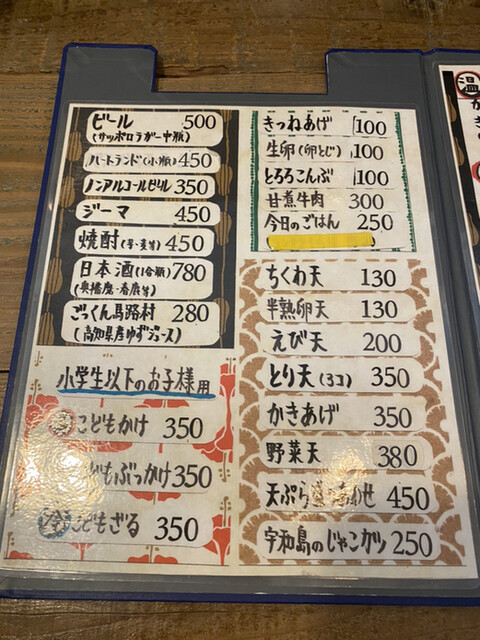 ビール 500
(サッポロラガー中瓶)
ハートランド(小瓶) 450
ノンアルコールビール 350
ジーマ 450
焼酎(芋・麦等) 450
日本酒(1合瓶) 780
(奥播磨・春鹿等)
ごっくん馬路村 280
(高知県産ゆずジュース)
小学生以下のお子様用
こどもかけ 350
どもぶっかけ 350
冷 こどもざる 350
きつねあげ 100
生卵(卵とじ) 100
とろろこんぶ 100
甘煮牛肉 300
今日のごはん 250
ちくわ天 130
半熟卵天 130
えび天 200
とり天(3コ) 350
かきあげ 350
野菜天 380
天ぷら盛り合わせ 450
宇和島のじゃこカツ 250
温